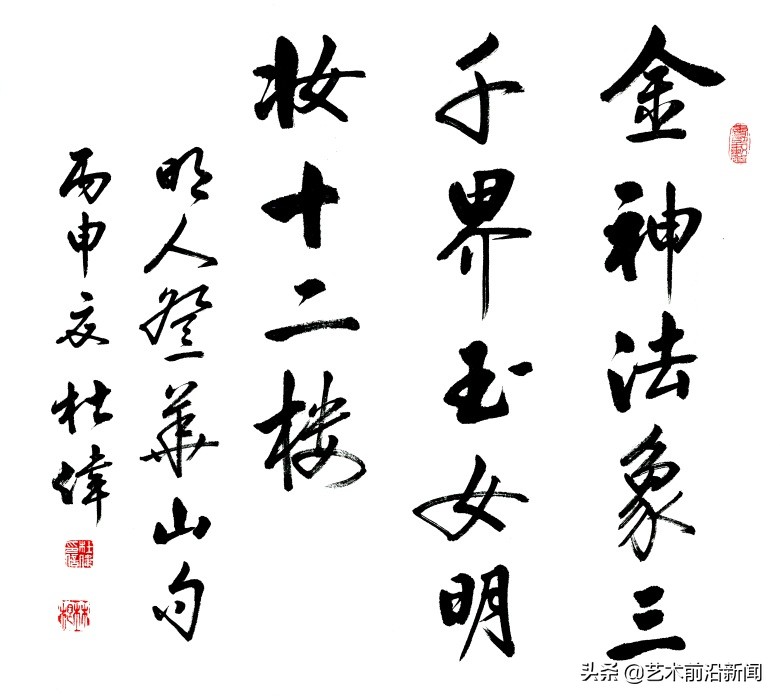 金神法象三
千界玉女明
妆十二楼
明人登華山句
丙申夏杜偉
头条 @艺术前沿新闻